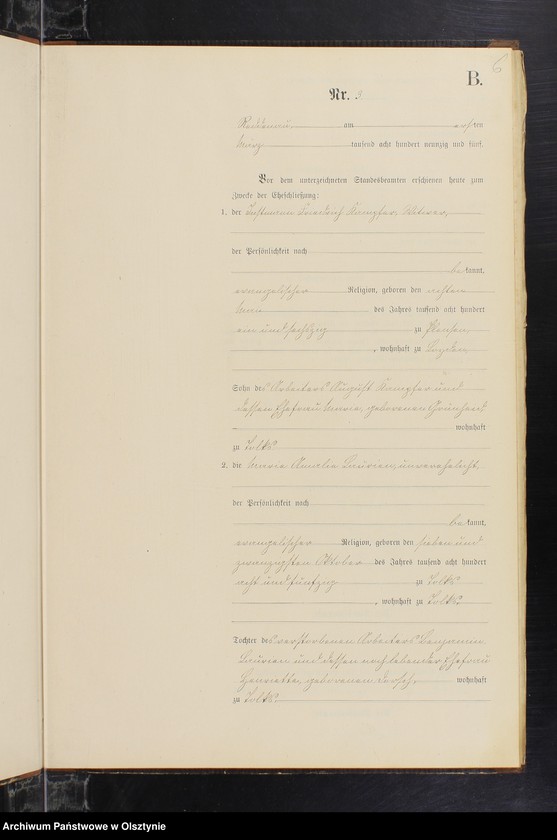 6
B.
Nr. 3
Reddenau am ersten
März tausend acht hundert neunzig und fünf.
Vor dem unterzeichneten Standesbeamten erschienen heute zum
Zwecke der Eheschließung:
1. der Instmann Friedrich Kampfer, Witwer,
der Persönlichkeit nach
bekannt,
evangelischer Religion, geboren den achten
des Jahres tausend acht hundert
ein und sechszig zu
, wohnhaft zu
Sohn des Arbeiters August Kampfer und
dessen Ehefrau Marie, geborenen Grünheid
wohnhaft
zu Tolks
2. die Marie Amalie Laurien, unverehelicht,
der Persönlichkeit nach
bekannt,
evangelischer Religion, geboren den sieben und
zwanzigsten Oktober des Jahres tausend acht hundert
acht und fünfzig zu Tolks
, wohnhaft zu Tolks
Tochter des verstorbenen Arbeiters Benjamin
Laurien und dessen noch lebender Ehefrau
Henriette, geborenen wohnhaft
zu Tolks
Archiwum Państwowe w Olsztynie